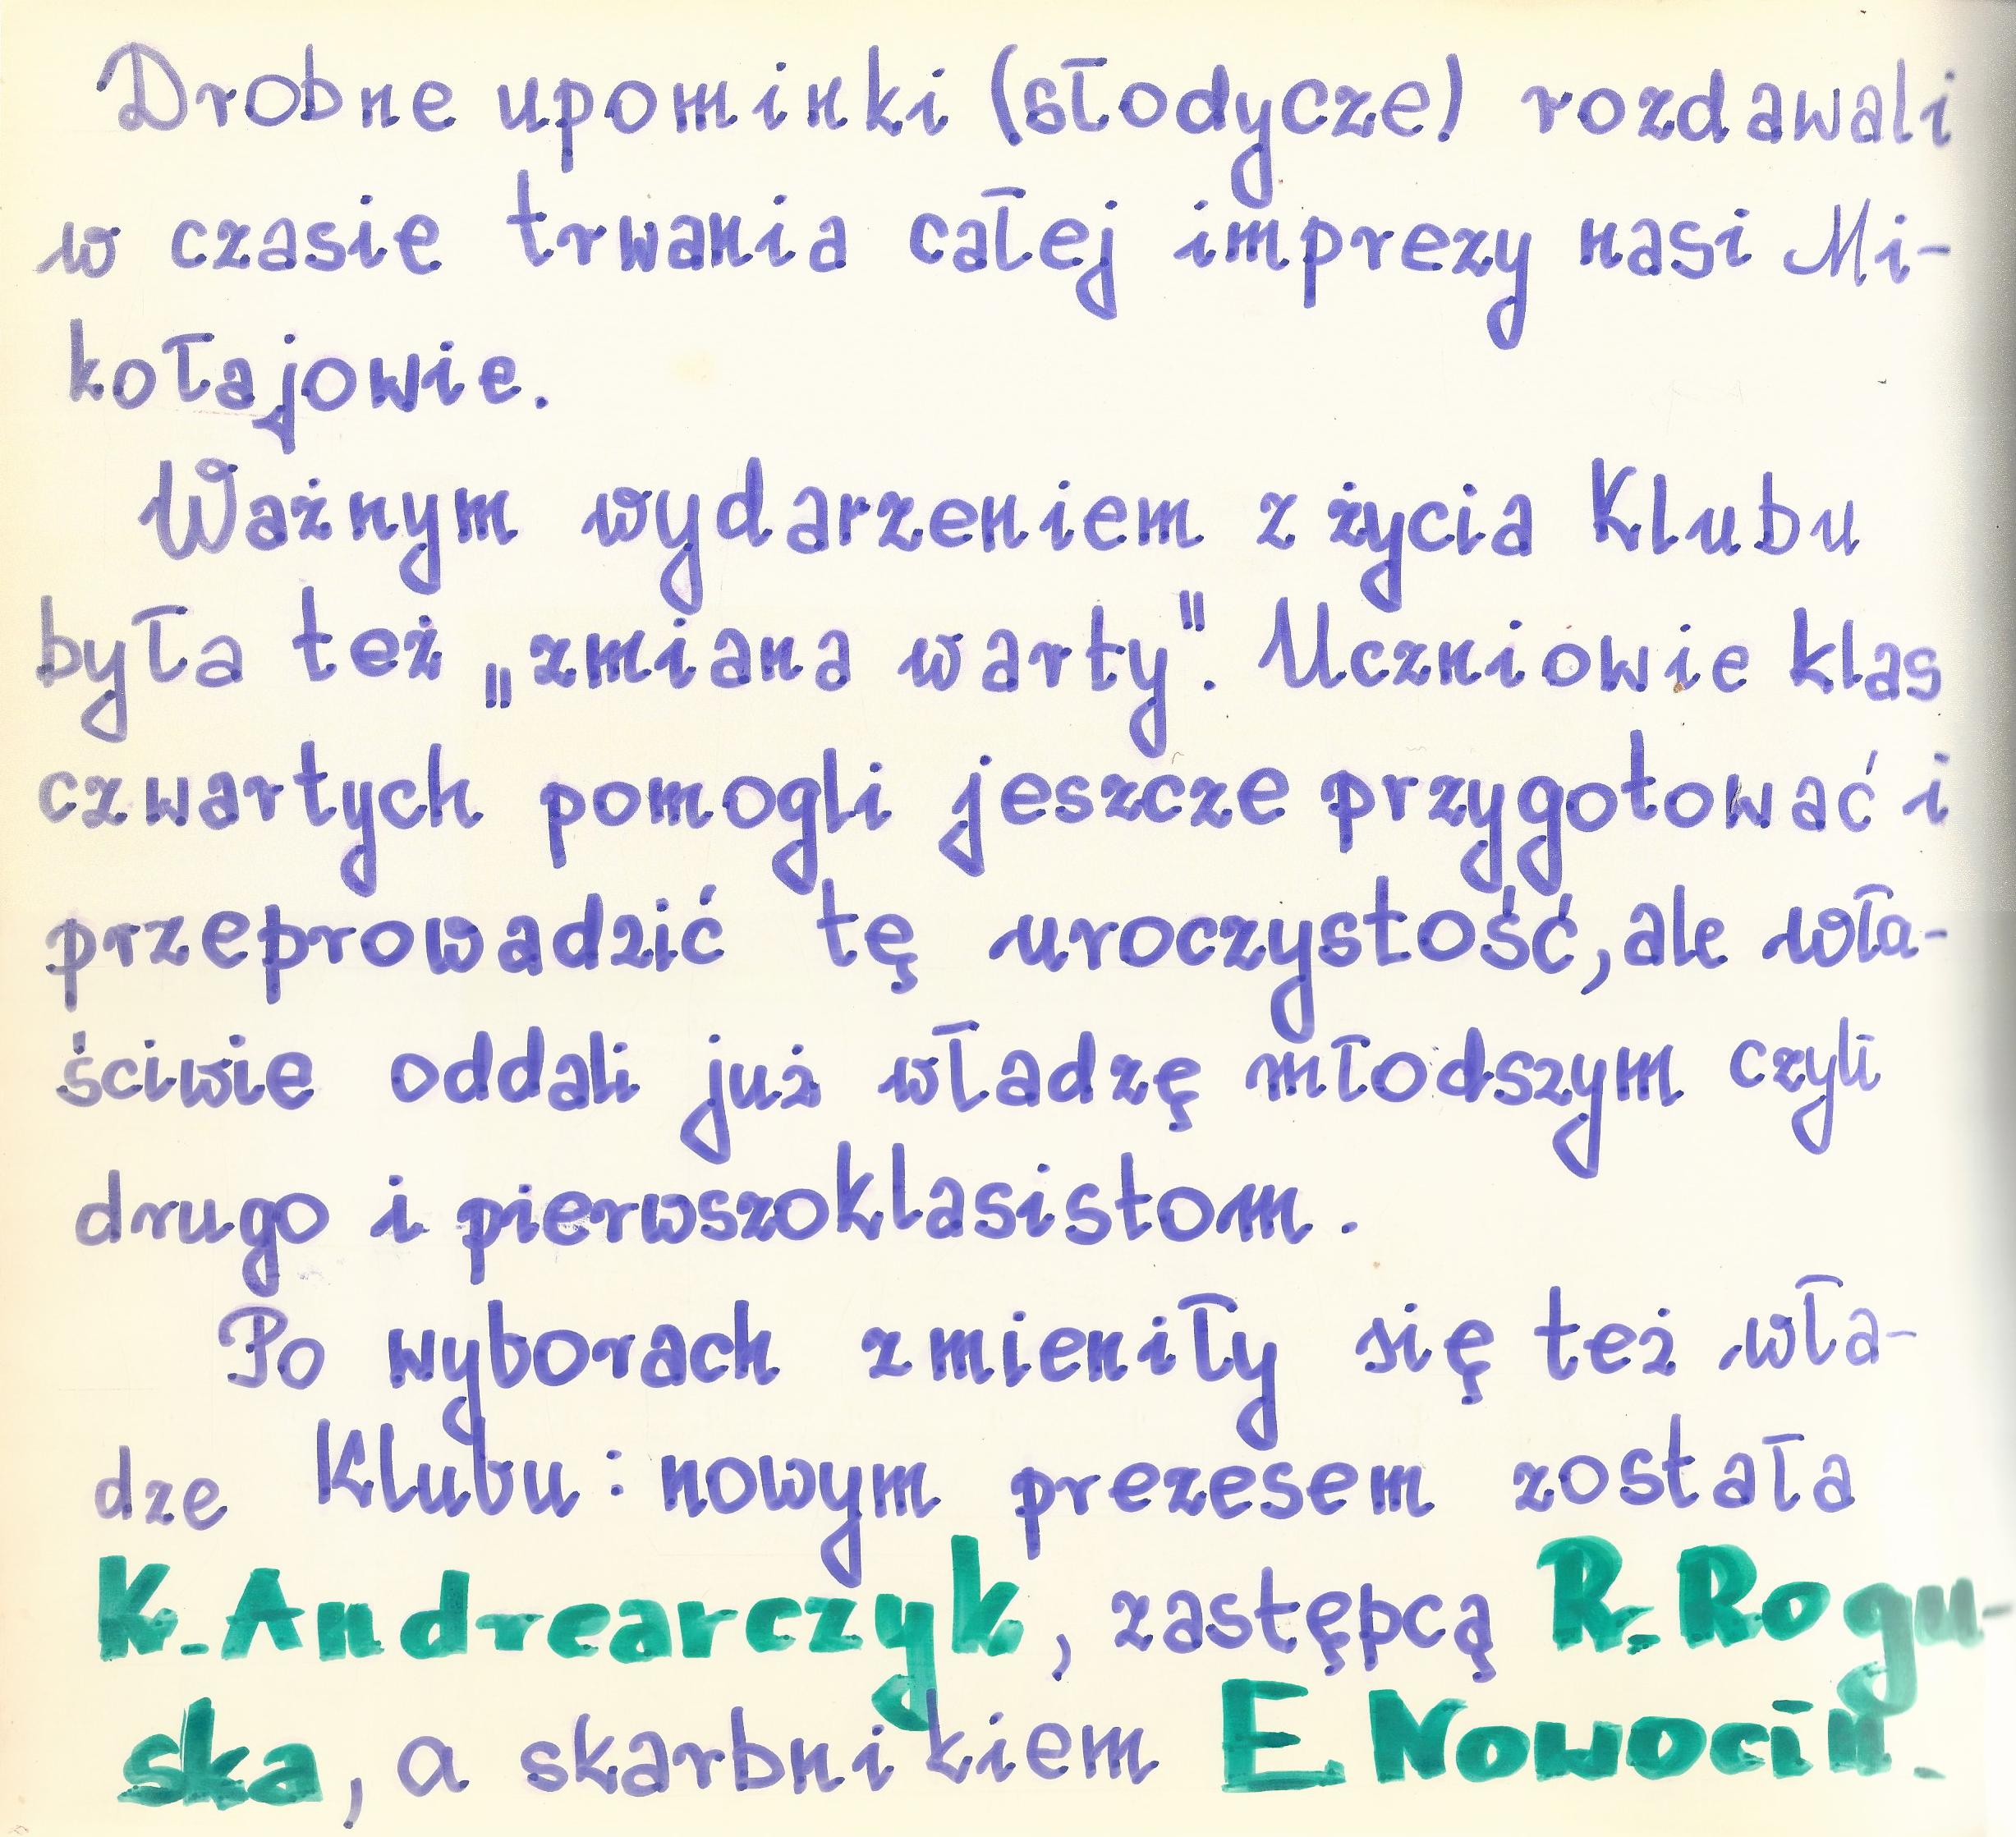 Drobne upominki (słodycze) rozdawali
w czasie trwania całej imprezy nasi Mi-
kołajowie.
Ważnym wydarzeniem z życia Klubu
była też „zmiana warty". Uczniowie klas
czwartych pomogli jeszcze przygotować i
przeprowadzić tę uroczystość, ale wła-
ściwie oddali już władzę młodszym czyli
drugo i pierwszoklasistom.
Po wyborach zmieniły się też wła-
dze Klubu: nowym prezesem została
K. Andrearczyk, zastępcą R. Rogu-
ska, a skarbnikiem E. Nowocin.